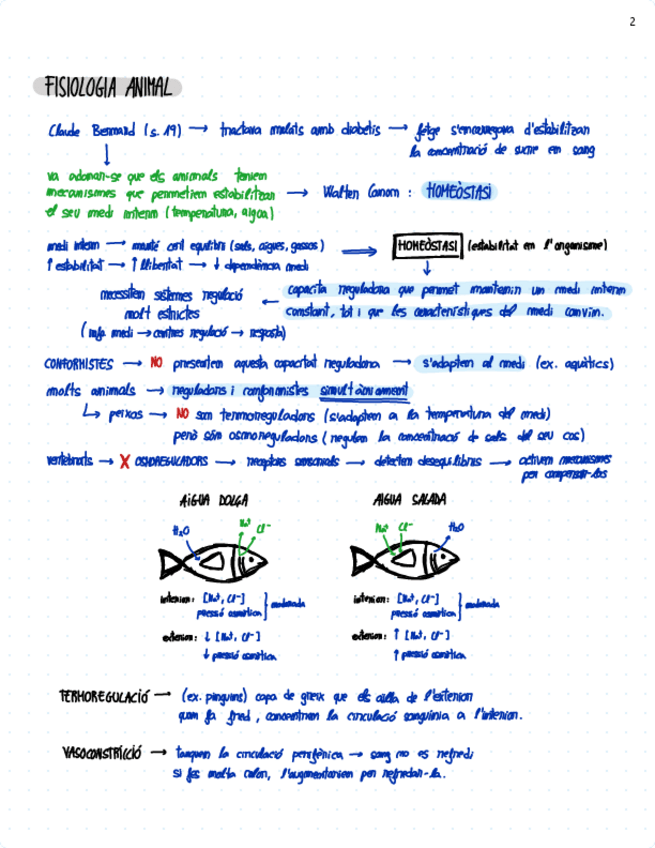 2
FISIOLOGIA ANIMAL
Claude Bernard (s. 19) → tractava malats amb diabetis → fetge s'encarregava d'estabilitzar
la concentració de sucre en sang
↓
va adonar-se que els animals tenien
mecanismes que permetien estabilitzar → Walter Canon : HOMEÒSTASI
el seu medi intern (temperatura, aigua)
medi intern → manté cert equilibri (sals, aigües, gasos) → HOMEÒSTASI (estabilitat en l'organisme)
↑ estabilitat → ↑ llibertat → ↓ dependència medi ↓
necessiten sistemes regulació ← capacitat reguladora que permet mantenir un medi intern
molt estrictes constant, tot i que les característiques del medi canvin.
(info medi → centres regulació → resposta)
CONFORMISTES → NO presenten aquesta capacitat reguladora → s'adapten al medi (ex. aquàtics)
molts animals → reguladors i conformistes simultàniament
↳ peixos → NO son termoreguladors (s'adapten a la temperatura del medi)
però són osmoreguladors (regulen la concentració de sals del seu cos)
vertebrats → X OSMOREGULADORS → receptors sensorials → detecten desequilibris → activen mecanismes
per compensar-los
AIGUA DOLÇA AIGUA SALADA
H₂O Na⁺ Cl⁻ Na⁺ Cl⁻ H₂O
interior: [Na⁺, Cl⁻] } moderada interior: [Na⁺, Cl⁻] } moderada
pressió osmòtica pressió osmòtica
exterior: ↓ [Na⁺, Cl⁻] exterior: ↑ [Na⁺, Cl⁻]
↓ pressió osmòtica ↑ pressió osmòtica
TERMOREGULACIÓ → (ex. pinguins) capa de greix que els aïlla de l'exterior
quan fa fred, concentren la circulació sanguínia a l'interior.
VASOCONSTRICCIÓ → tanquen la circulació perifèrica → sang no es refredi
si fes molta calor, l'augmentarien per refredar-la.